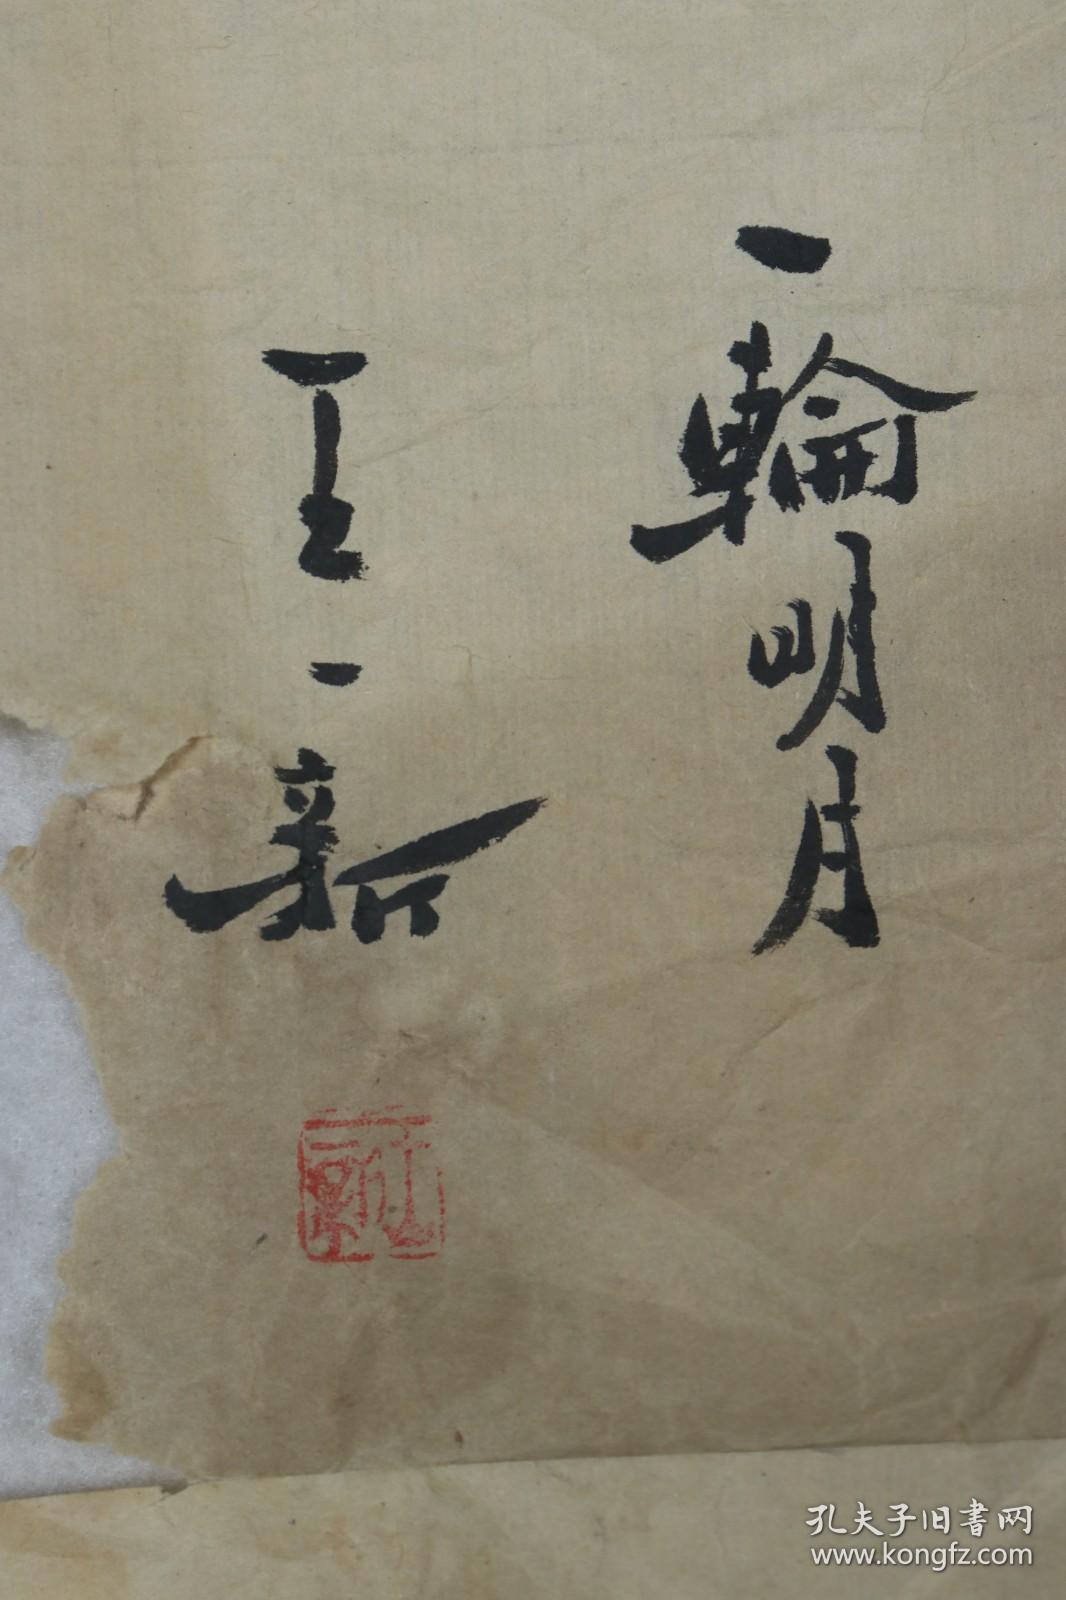 一輪明月
王一新
孔夫子旧書网
www.kongfz.com